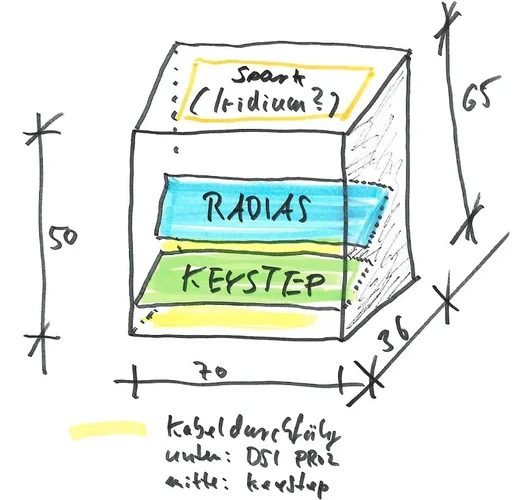 Spark
(Iridium?)
65
RADIAS
50
KEYSTEP
36
70
Kabeldurchführg
unten: DSI PRO2
mitte: keystep